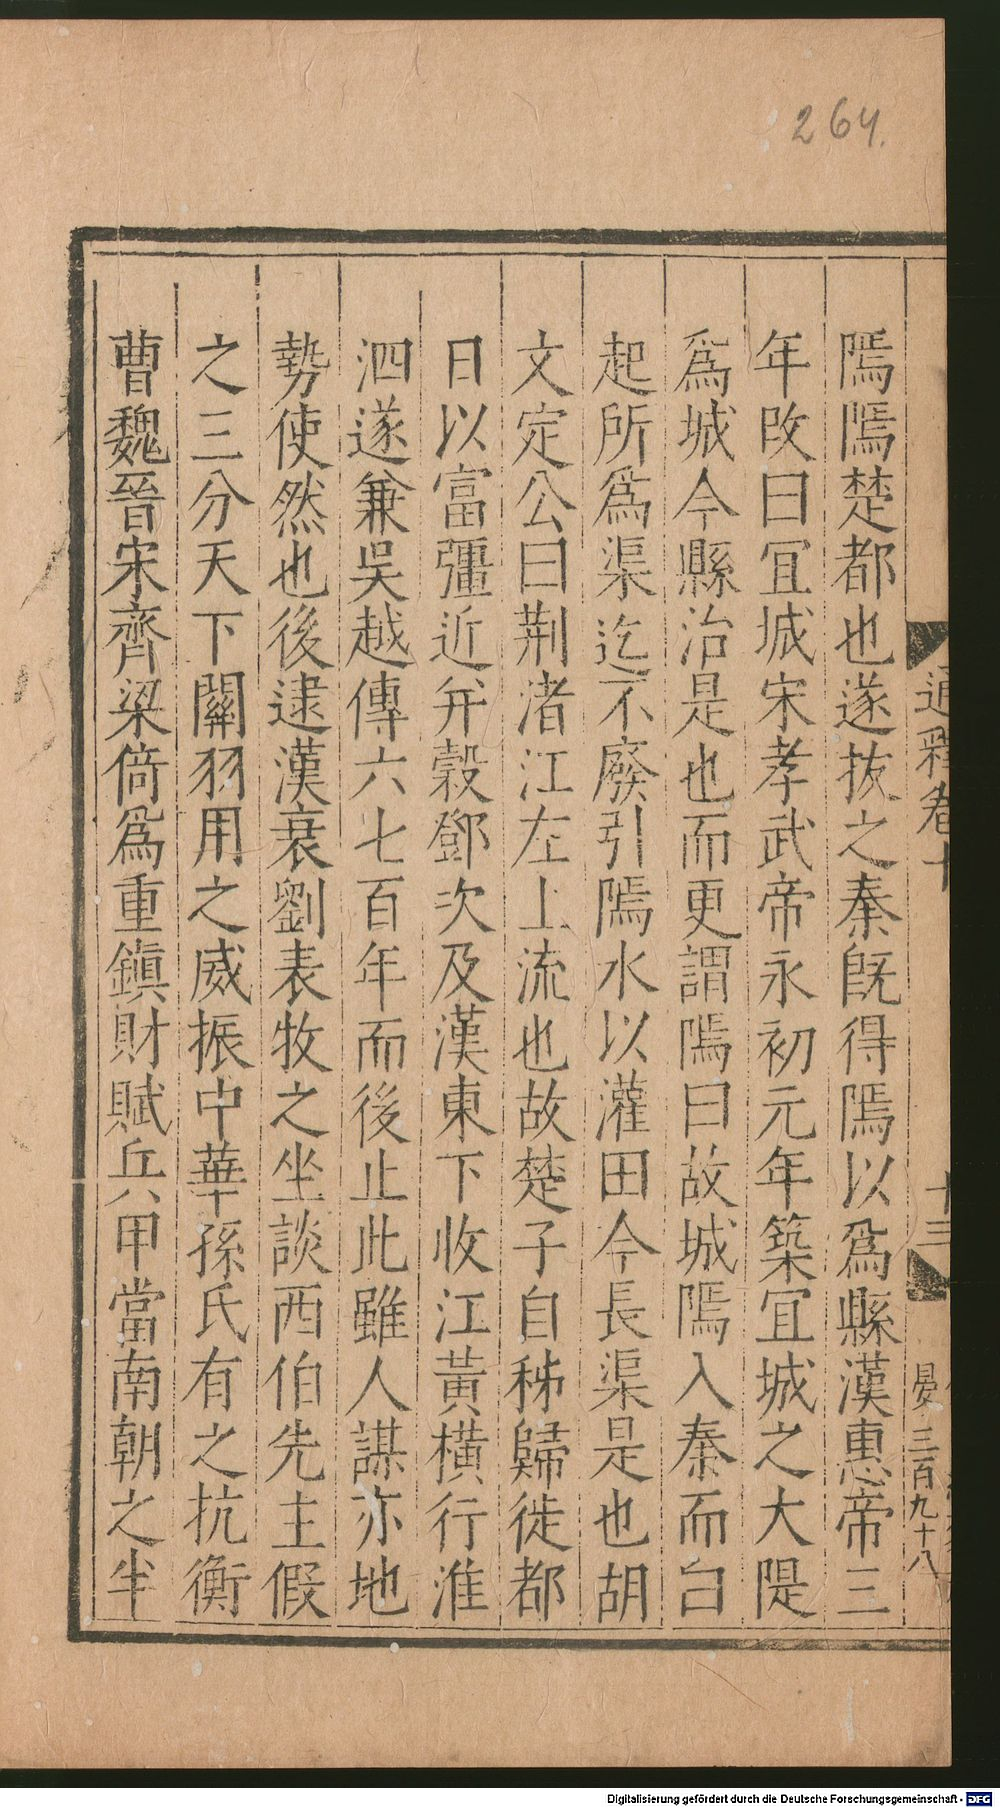 264.
鄢鄢楚都也遂拔之秦旣得鄢以爲縣漢惠帝三
年改曰宜城宋孝武帝永初元年築宜城之大隄
爲城今縣治是也而更謂鄢曰故城鄢入秦而白
起所爲渠迄不廢引鄢水以灌田今長渠是也胡
文定公曰荆渚江左上流也故楚子自秭歸徙都
日以富彊近幷穀鄧次及漢東下收江黃橫行淮
泗遂兼吳越傳六七百年而後止此雖人謀亦地
勢使然也後逮漢衰劉表牧之坐談西伯先主假
之三分天下關羽用之威振中華孫氏有之抗衡
曹魏晉宋齊梁倚爲重鎭財賦兵甲當南朝之半
通釋卷十
十三
晏
三百九十八
Digitalisierung gefördert durch die Deutsche Forschungsgemeinschaft - DFG